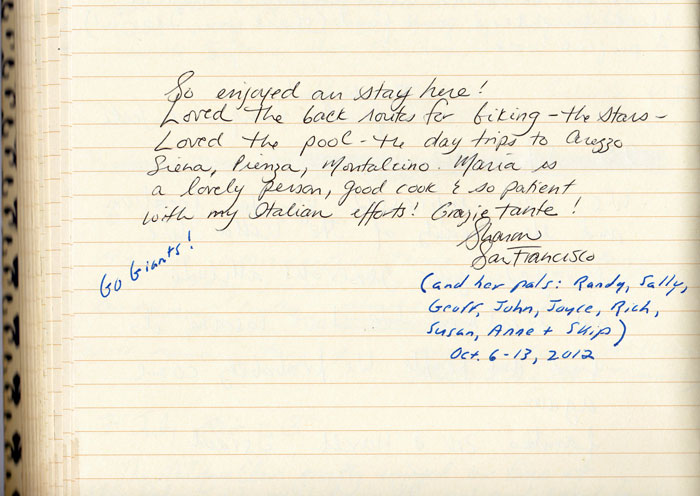 So enjoyed our stay here!
Loved the back routes for biking - the stars -
Loved the pool - the day trips to Arezzo
Siena, Pienza, Montalcino. Maria is
a lovely person, good cook & so patient
with my Italian efforts! Grazie tante!
Sharon
San Francisco
Go Giants!
(and her pals: Randy, Sally,
Geoff, John, Joyce, Rich,
Susan, Anne + Skip)
Oct. 6-13, 2012